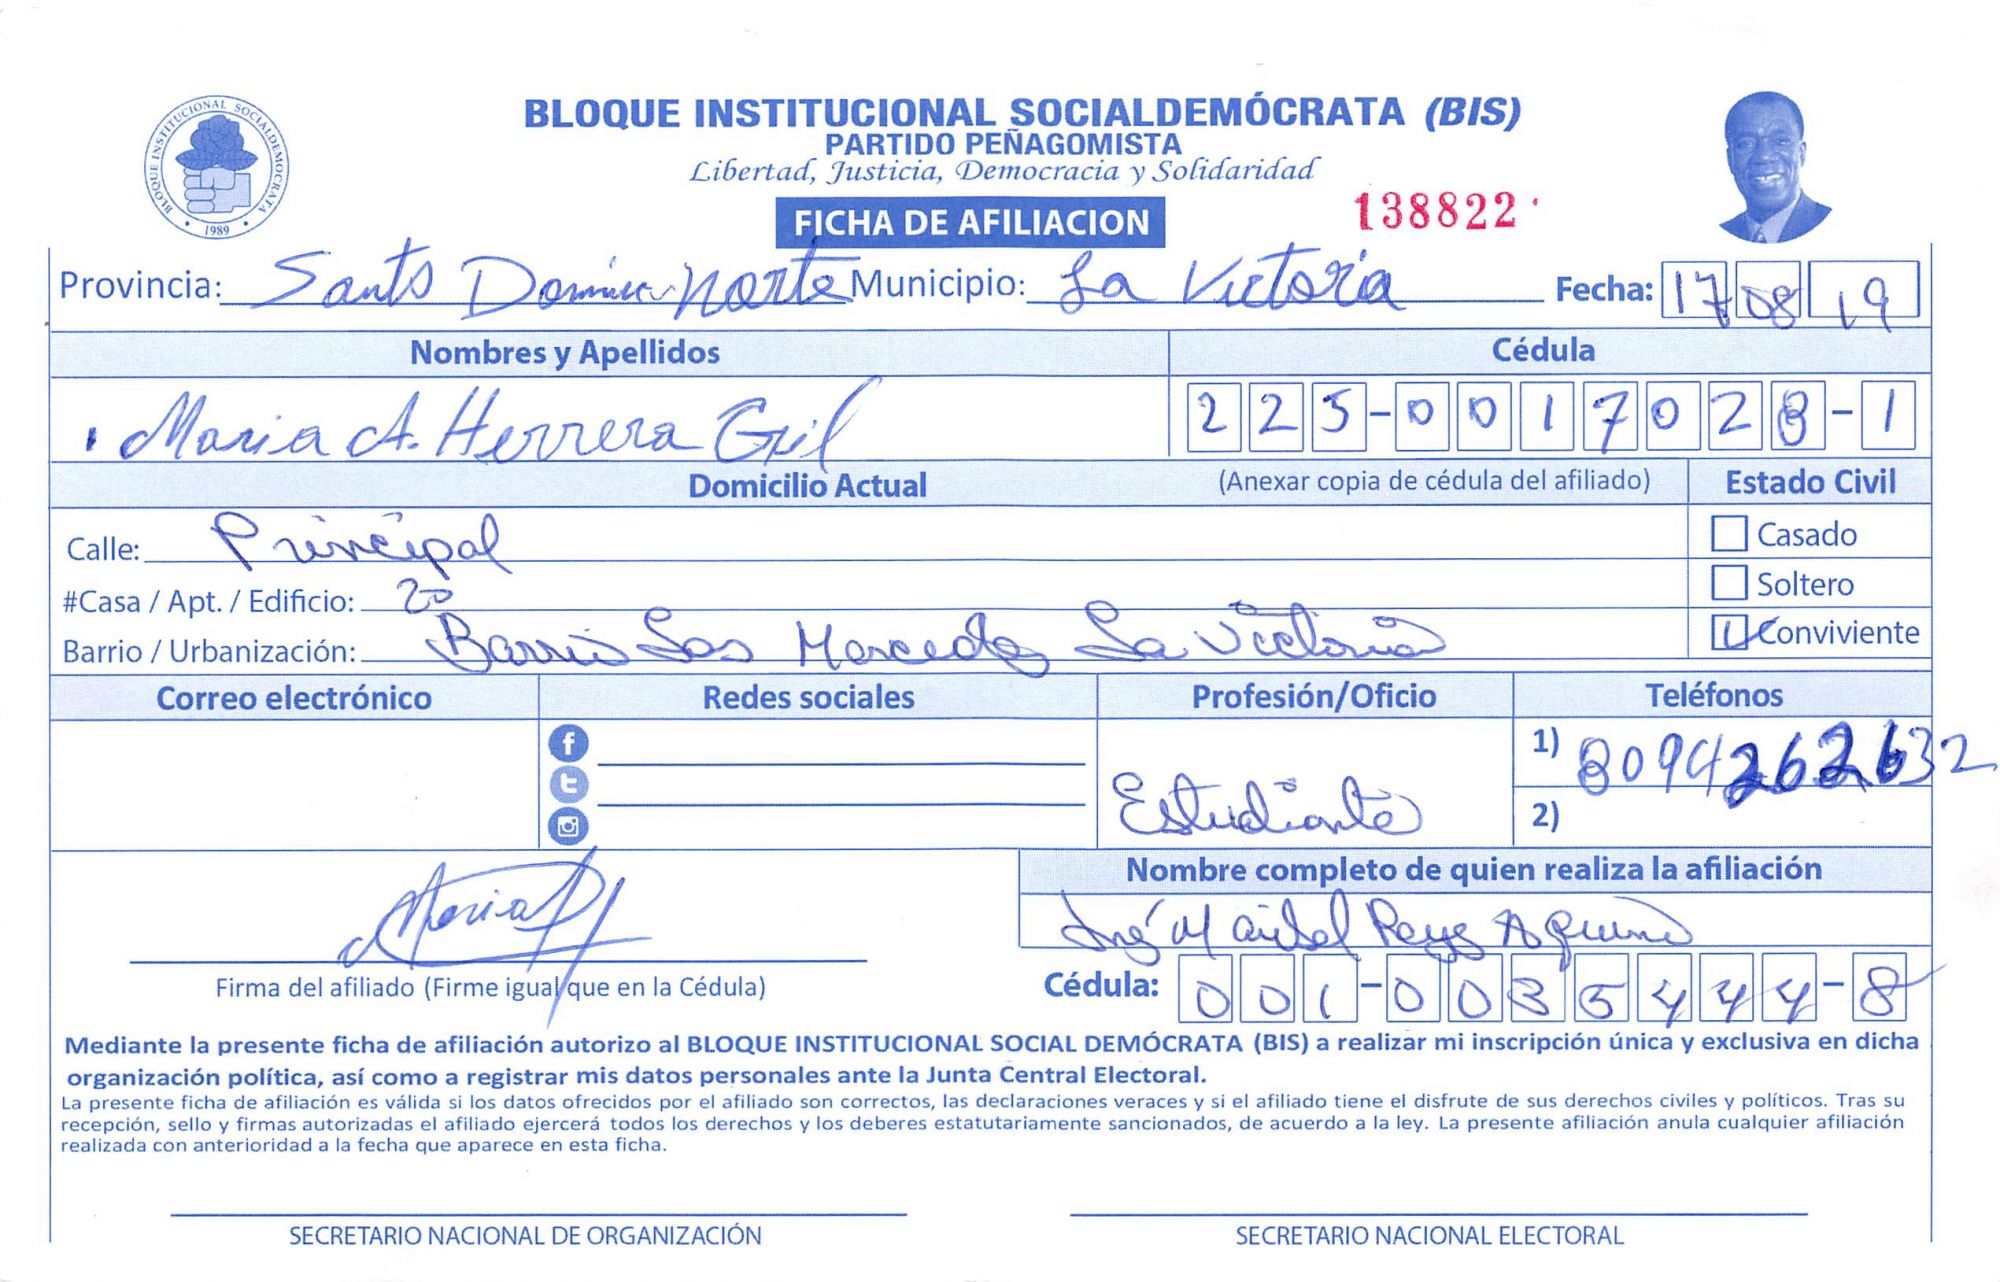 BLOQUE INSTITUCIONAL SOCIALDEMÓCRATA (BIS)
PARTIDO PEÑAGOMISTA
Libertad, Justicia, Democracia y Solidaridad
BLOQUE INSTITUCIONAL SOCIALDEMOCRATA
1989
FICHA DE AFILIACION
138822
Provincia: Santo Domingo Norte Municipio: La Victoria Fecha: 17 08 19
Nombres y Apellidos Cédula
Maria A. Herrera Gil 225-0017028-1
Domicilio Actual (Anexar copia de cédula del afiliado) Estado Civil
Calle: Principal Casado
#Casa / Apt. / Edificio: 20 Soltero
Barrio / Urbanización: Barrio Las Mercedes La Victoria Conviviente
Correo electrónico Redes sociales Profesión/Oficio Teléfonos
1) 8094262632
Estudiante
2)
Nombre completo de quien realiza la afiliación
Maria
Ing Maribel Reyes Aquino
Firma del afiliado (Firme igual que en la Cédula) Cédula: 001-0035444-8
Mediante la presente ficha de afiliación autorizo al BLOQUE INSTITUCIONAL SOCIAL DEMÓCRATA (BIS) a realizar mi inscripción única y exclusiva en dicha
organización política, así como a registrar mis datos personales ante la Junta Central Electoral.
La presente ficha de afiliación es válida si los datos ofrecidos por el afiliado son correctos, las declaraciones veraces y si el afiliado tiene el disfrute de sus derechos civiles y políticos. Tras su
recepción, sello y firmas autorizadas el afiliado ejercerá todos los derechos y los deberes estatutariamente sancionados, de acuerdo a la ley. La presente afiliación anula cualquier afiliación
realizada con anterioridad a la fecha que aparece en esta ficha.
SECRETARIO NACIONAL DE ORGANIZACIÓN SECRETARIO NACIONAL ELECTORAL